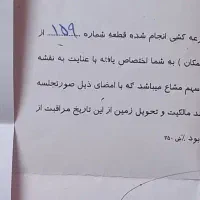 رعه کشی انجام شده قطعه شماره ..۱۵۹.. از
مکان ) به شما اختصاص یافته با عنایت به نقشه
سهم مشاع میباشد که با امضای ذیل صورتجلسه
ند مالکیت و تحویل زمین از این تاریخ مراقبت از
بود